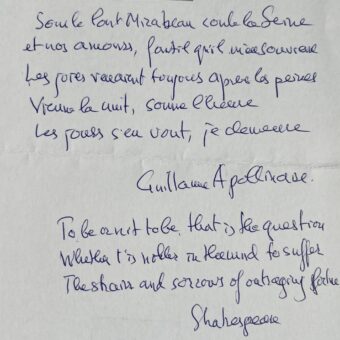 Sous le Pont Mirabeau coule la Seine
et nos amours, faut il qu'il m'en souvienne
Les joies venaient toujours après les peines
Vienne la nuit, sonne l'heure
Les jours s'en vont, je demeure
Guillaume Apollinaire.
To be or not to be, that is the question
Whether t'is nobler in the mind to suffer
The and sorrows of outraging fortune
Shakespeare